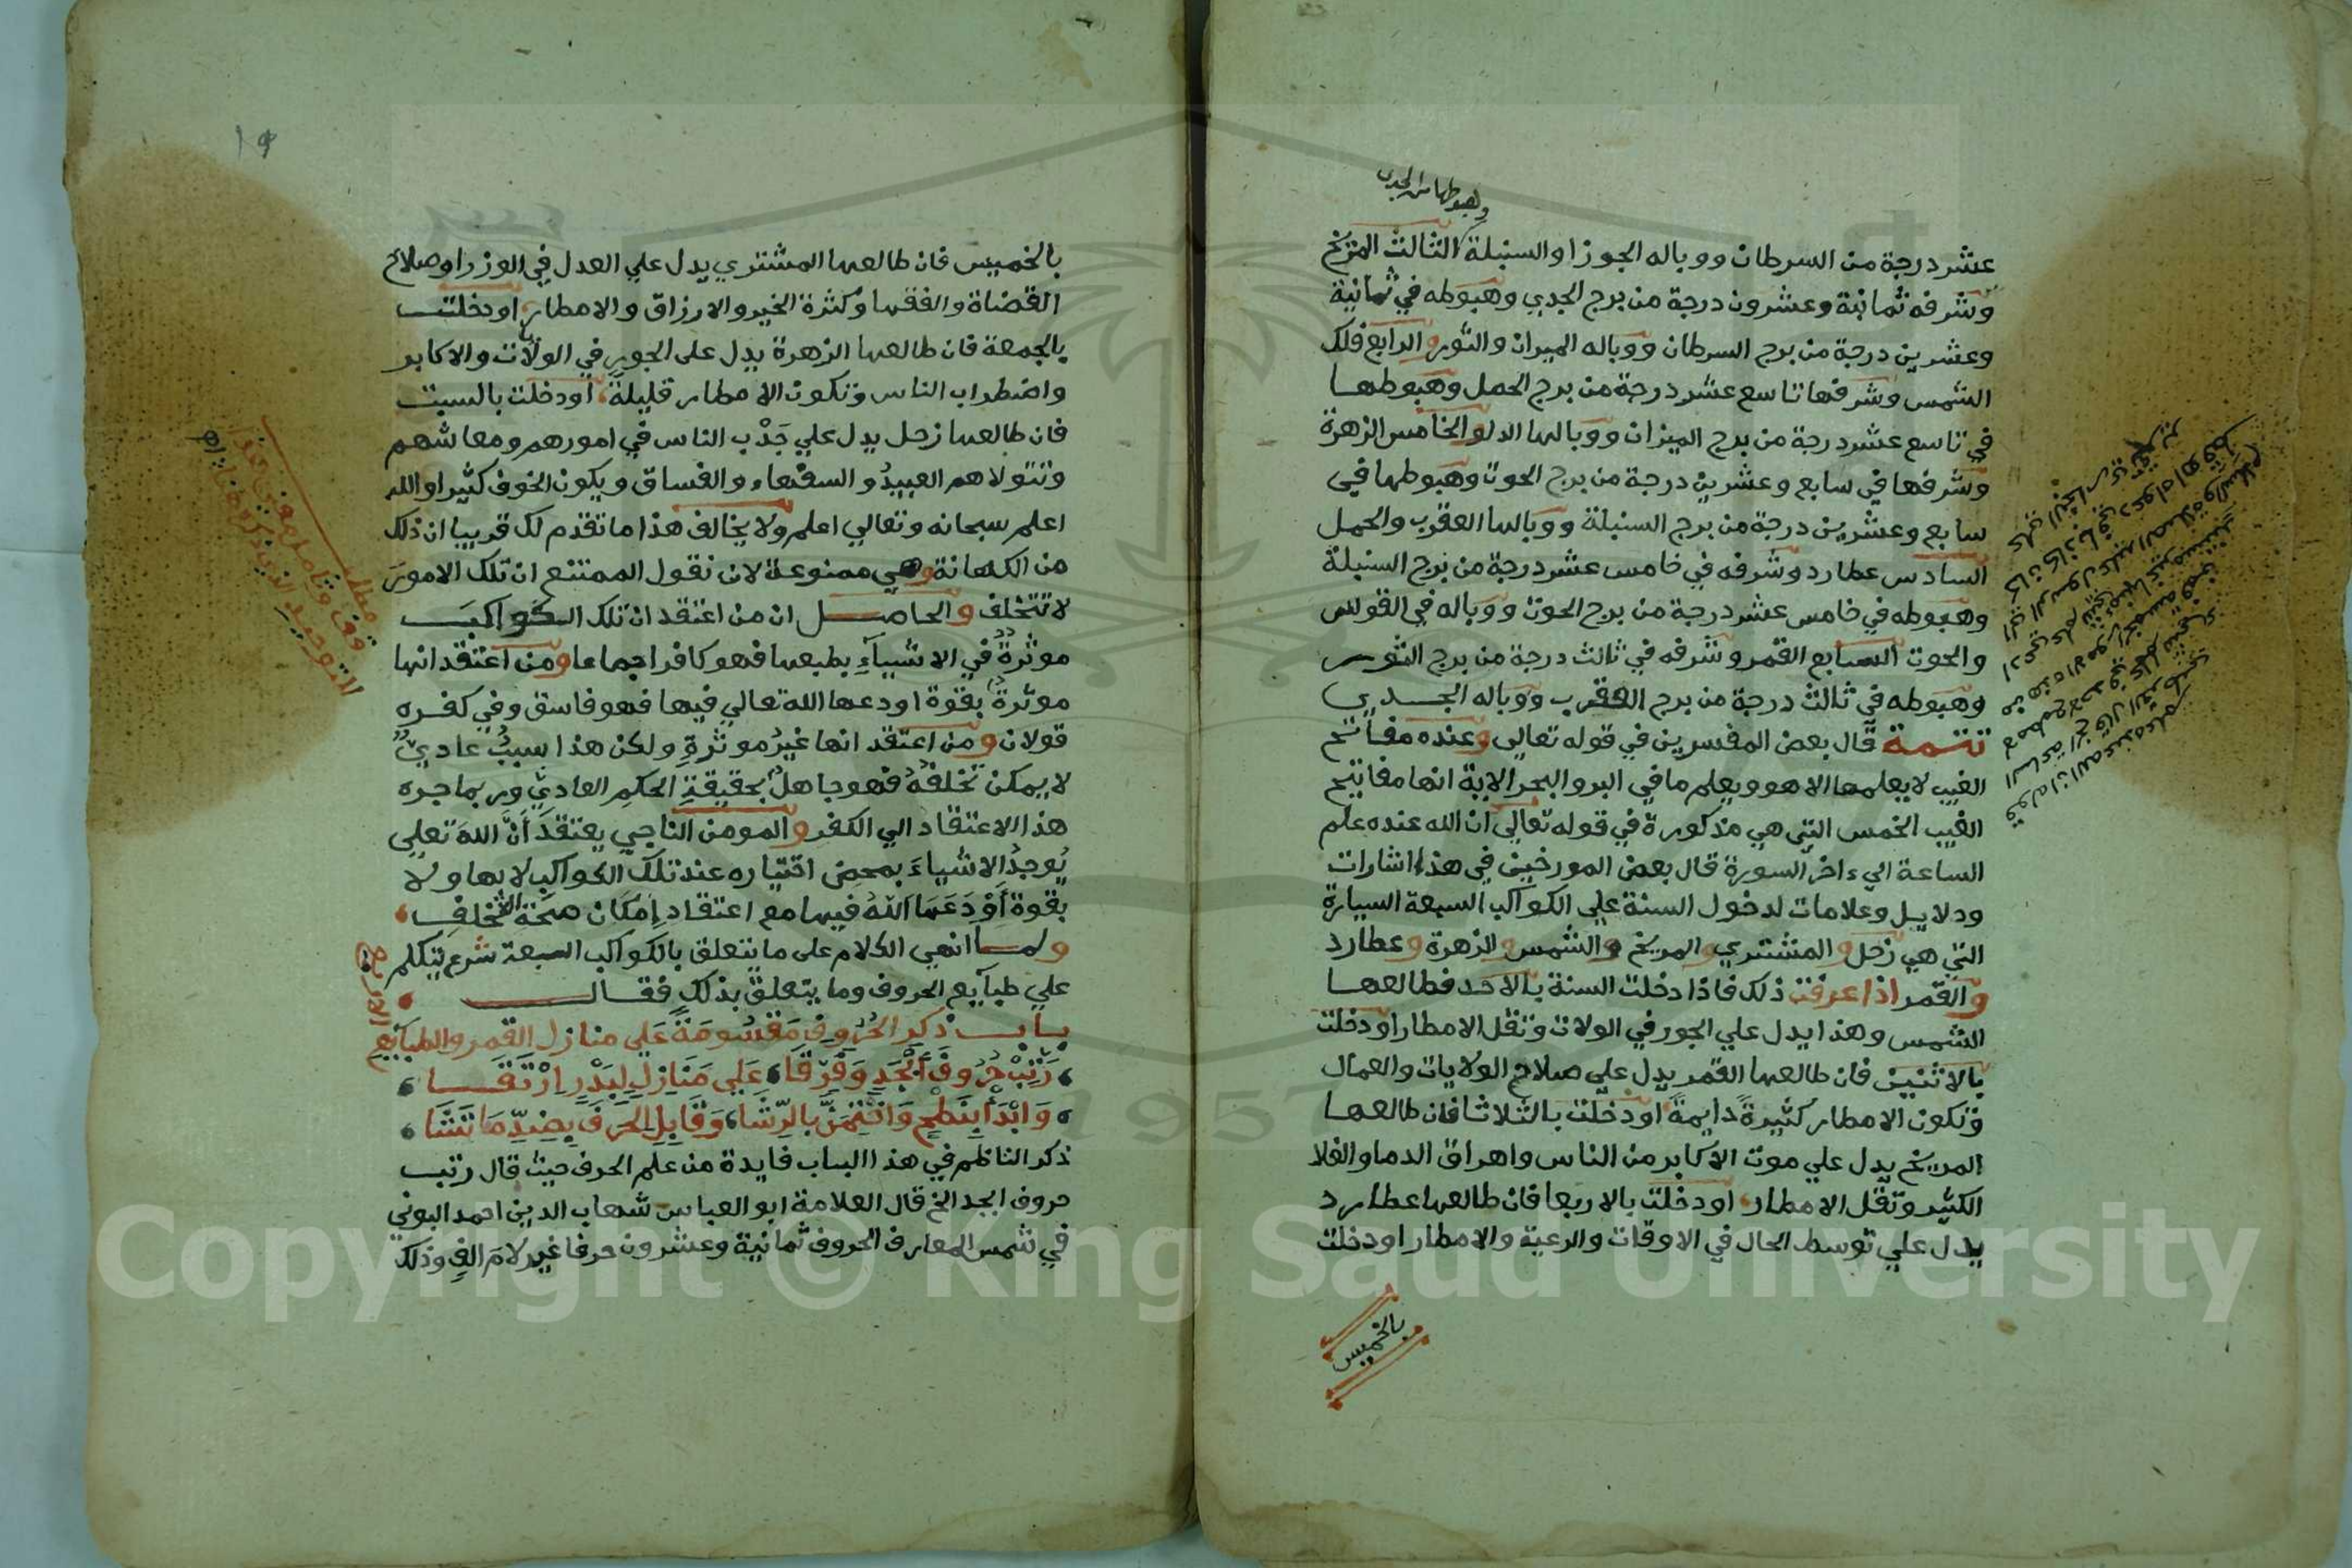 وهبوطها من الجدي
عشر درجة من السرطان ووباله الجوزا والسنبلة الثالث المريخ
وشرفه ثمانية وعشرون درجة من برج الجدي وهبوطه في ثمانية
وعشرين درجة من برج السرطان ووباله الميزان والثور والرابع فلك
الشمس وشرفها تاسع عشر درجة من برج الحمل وهبوطها
في تاسع عشر درجة من برج الميزان ووبالها الدلو الخامس الزهرة
وشرفها في سابع وعشرين درجة من برج الحوت وهبوطها في
سابع وعشرين درجة من برج السنبلة ووبالها العقرب والحمل
السادس عطارد وشرفه في خامس عشر درجة من برج السنبلة
وهبوطه في خامس عشر درجة من برج الحوت ووباله في القوس
والحوت السابع القمر وشرفه في ثالث درجة من برج الثور
وهبوطه في ثالث درجة من برج العقرب ووباله الجدي
تتمة قال بعض المفسرين في قوله تعالى وعنده مفاتح
الغيب لا يعلمها الا هو ويعلم ما في البر والبحر الاية انها مفاتيح
الغيب الخمس التي هي مذكورة في قوله تعالي ان الله عنده علم
الساعة الي ءاخر السورة قال بعض المورخين في هذا اشارات
ودلايل وعلامات لدخول السنة علي الكواكب السبعة السيارة
التي هي زحل والمشتري والمريخ والشمس والزهرة وعطارد
والقمر اذا عرفت ذلك فاذا دخلت السنة بالاحد فطالعها
الشمس وهذا يدل علي الجور في الولات وتقل الامطار او دخلت
بالاثنين فان طالعها القمر يدل علي صلاح الولايات والعمال
وتكون الامطار كثيرة دايمة او دخلت بالثلاثا فان طالعها
المريخ يدل علي موت الاكابر من الناس واهراق الدما والغلا
الكثير وتقل الامطار او دخلت بالاربعا فان طالعها عطارد
يدل علي توسط الحال في الاوقات والرعية والامطار او دخلت
بالخميس
١٩
بالخميس فان طالعها المشتري يدل علي العدل في الوزرا وصلاح
القضاة والفقها وكثرة الخير والارزاق والامطار او دخلت
بالجمعة فان طالعها الزهرة يدل على الجور في الولات والاكابر
واضطراب الناس وتكون الامطار قليلة او دخلت بالسبت
فان طالعها زحل يدل علي جَدْب الناس في امورهم ومعاشهم
وتتولاهم العبيدُ والسفهاء والفساق ويكون الخوف كثيرا والله
اعلم سبحانه وتعالي اعلم ولا يخالف هذا ما تقدم لك قريبا ان ذلك
من الكهانة وهي ممنوعة لان نقول الممتنع ان تلك الامورَ
لا تتخلف والحاصل ان من اعتقد ان تلك الكواكبَ
موثرةٌ في الاشياءِ بطبعها فهو كافر اجماعا ومن اعتقد انها
موثرةٌ بقوة اودعها الله تعالي فيها فهو فاسق وفي كفره
قولان ومن اعتقد انها غيرُ موثرةٍ ولكن هذا سببٌ عاديٌّ
لا يمكن تخلفُهُ فهو جاهلٌ بحقيقةِ الحكمِ العاديِّ وربما جره
هذا الاعتقاد الي الكفر والمومن الناجي يعتقدَ أنَّ اللهَ تعلي
يُوجدُ الاشياءَ بمحض اختياره عند تلك الكواكب لا بها ولا
بقوة أَوْدَعَها اللهُ فيها مع اعتقاد إمكان صحة التخلف
ولما انهي الكلام على ما يتعلق بالكواكب السبعة شرع يتكلم
علي طبآيع الحروف وما يتعلق بذلك فقال
باب ذكر الحُرُوفِ مَقْسُومَةً عَلَى منازل القمر والطبايع الاربع
رَتِّبْ حُرُوفَ أَبْجَدٍ وَفَرِّقَا عَلَى مَنَازِلٍ لِبَدْرٍ ارْتَقَا
وَابْدَأْ بِنَطْحٍ وَاخْتِمَنَّ بِالرِّشَا وَقَابِلِ الحَرْفَ بِضِدِّ مَا تَشَا
ذكر الناظم في هذا الباب فايدة من علم الحرف حيث قال رتب
حروف ابجد الخ قال العلامة ابو العباس شهاب الدين احمد البوني
في شمس المعارف الحروف ثمانية وعشرون حرفا غير لامَ الفٍ وذلك
Copyright © King Saud University
1957